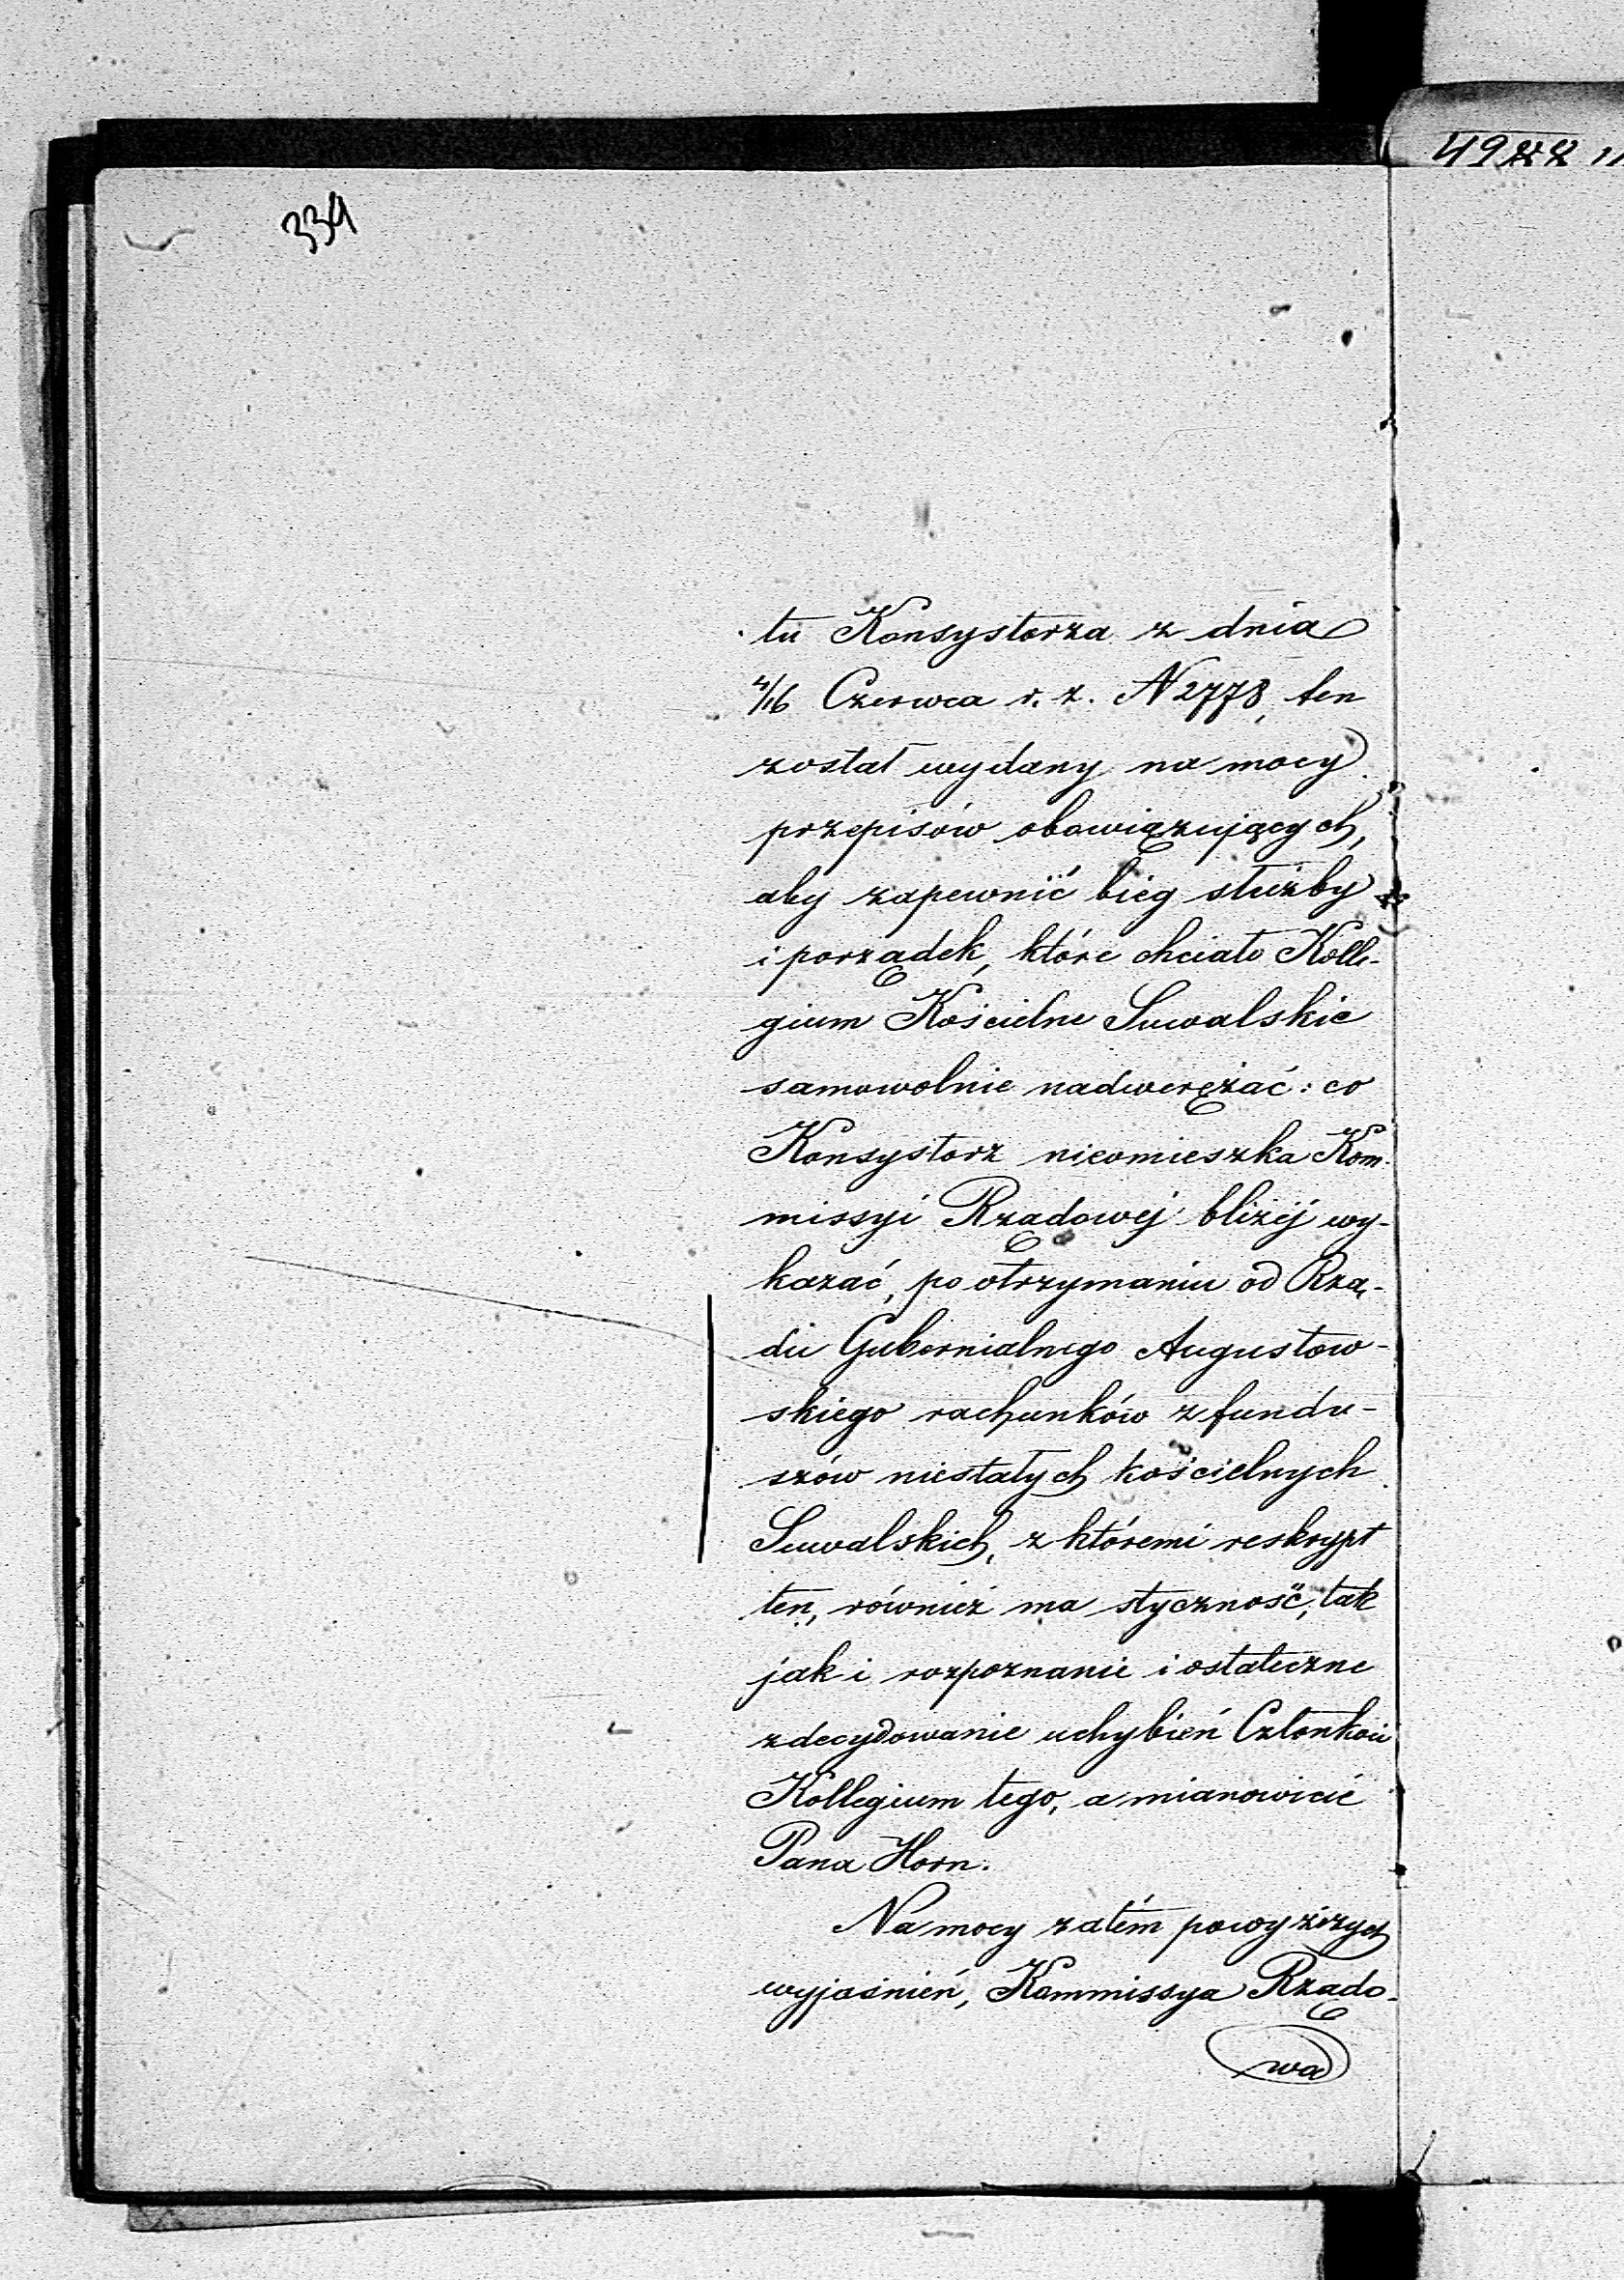 334
tu Konsystorza z dnia
4/16 Czerwca r. z. N 2778, ten
został wydany na mocy
przepisów obowiązujących,
aby zapewnić bieg służby
i porządek, które chciało Kolle-
gium Kościelne Suwalskie
samowolnie nadwerężać: co
Konsystorz nieomieszka Kom-
missyi Rządowéj bliżéj wy-
kazać, po otrzymaniu od Rzą-
du Gubernialnego Augustow-
skiego rachunków z fundu-
szów niestałych kościelnych
Suwalskich, z któremi reskrypt
ten, również ma styczność, tak
jak i rozpoznanie i ostateczne
zdecydowanie uchybień Członków
Kollegium tego, a mianowicie
Pana Horn.
Na mocy zatém powyższych
wyjaśnień, Kommissya Rządo-
wa